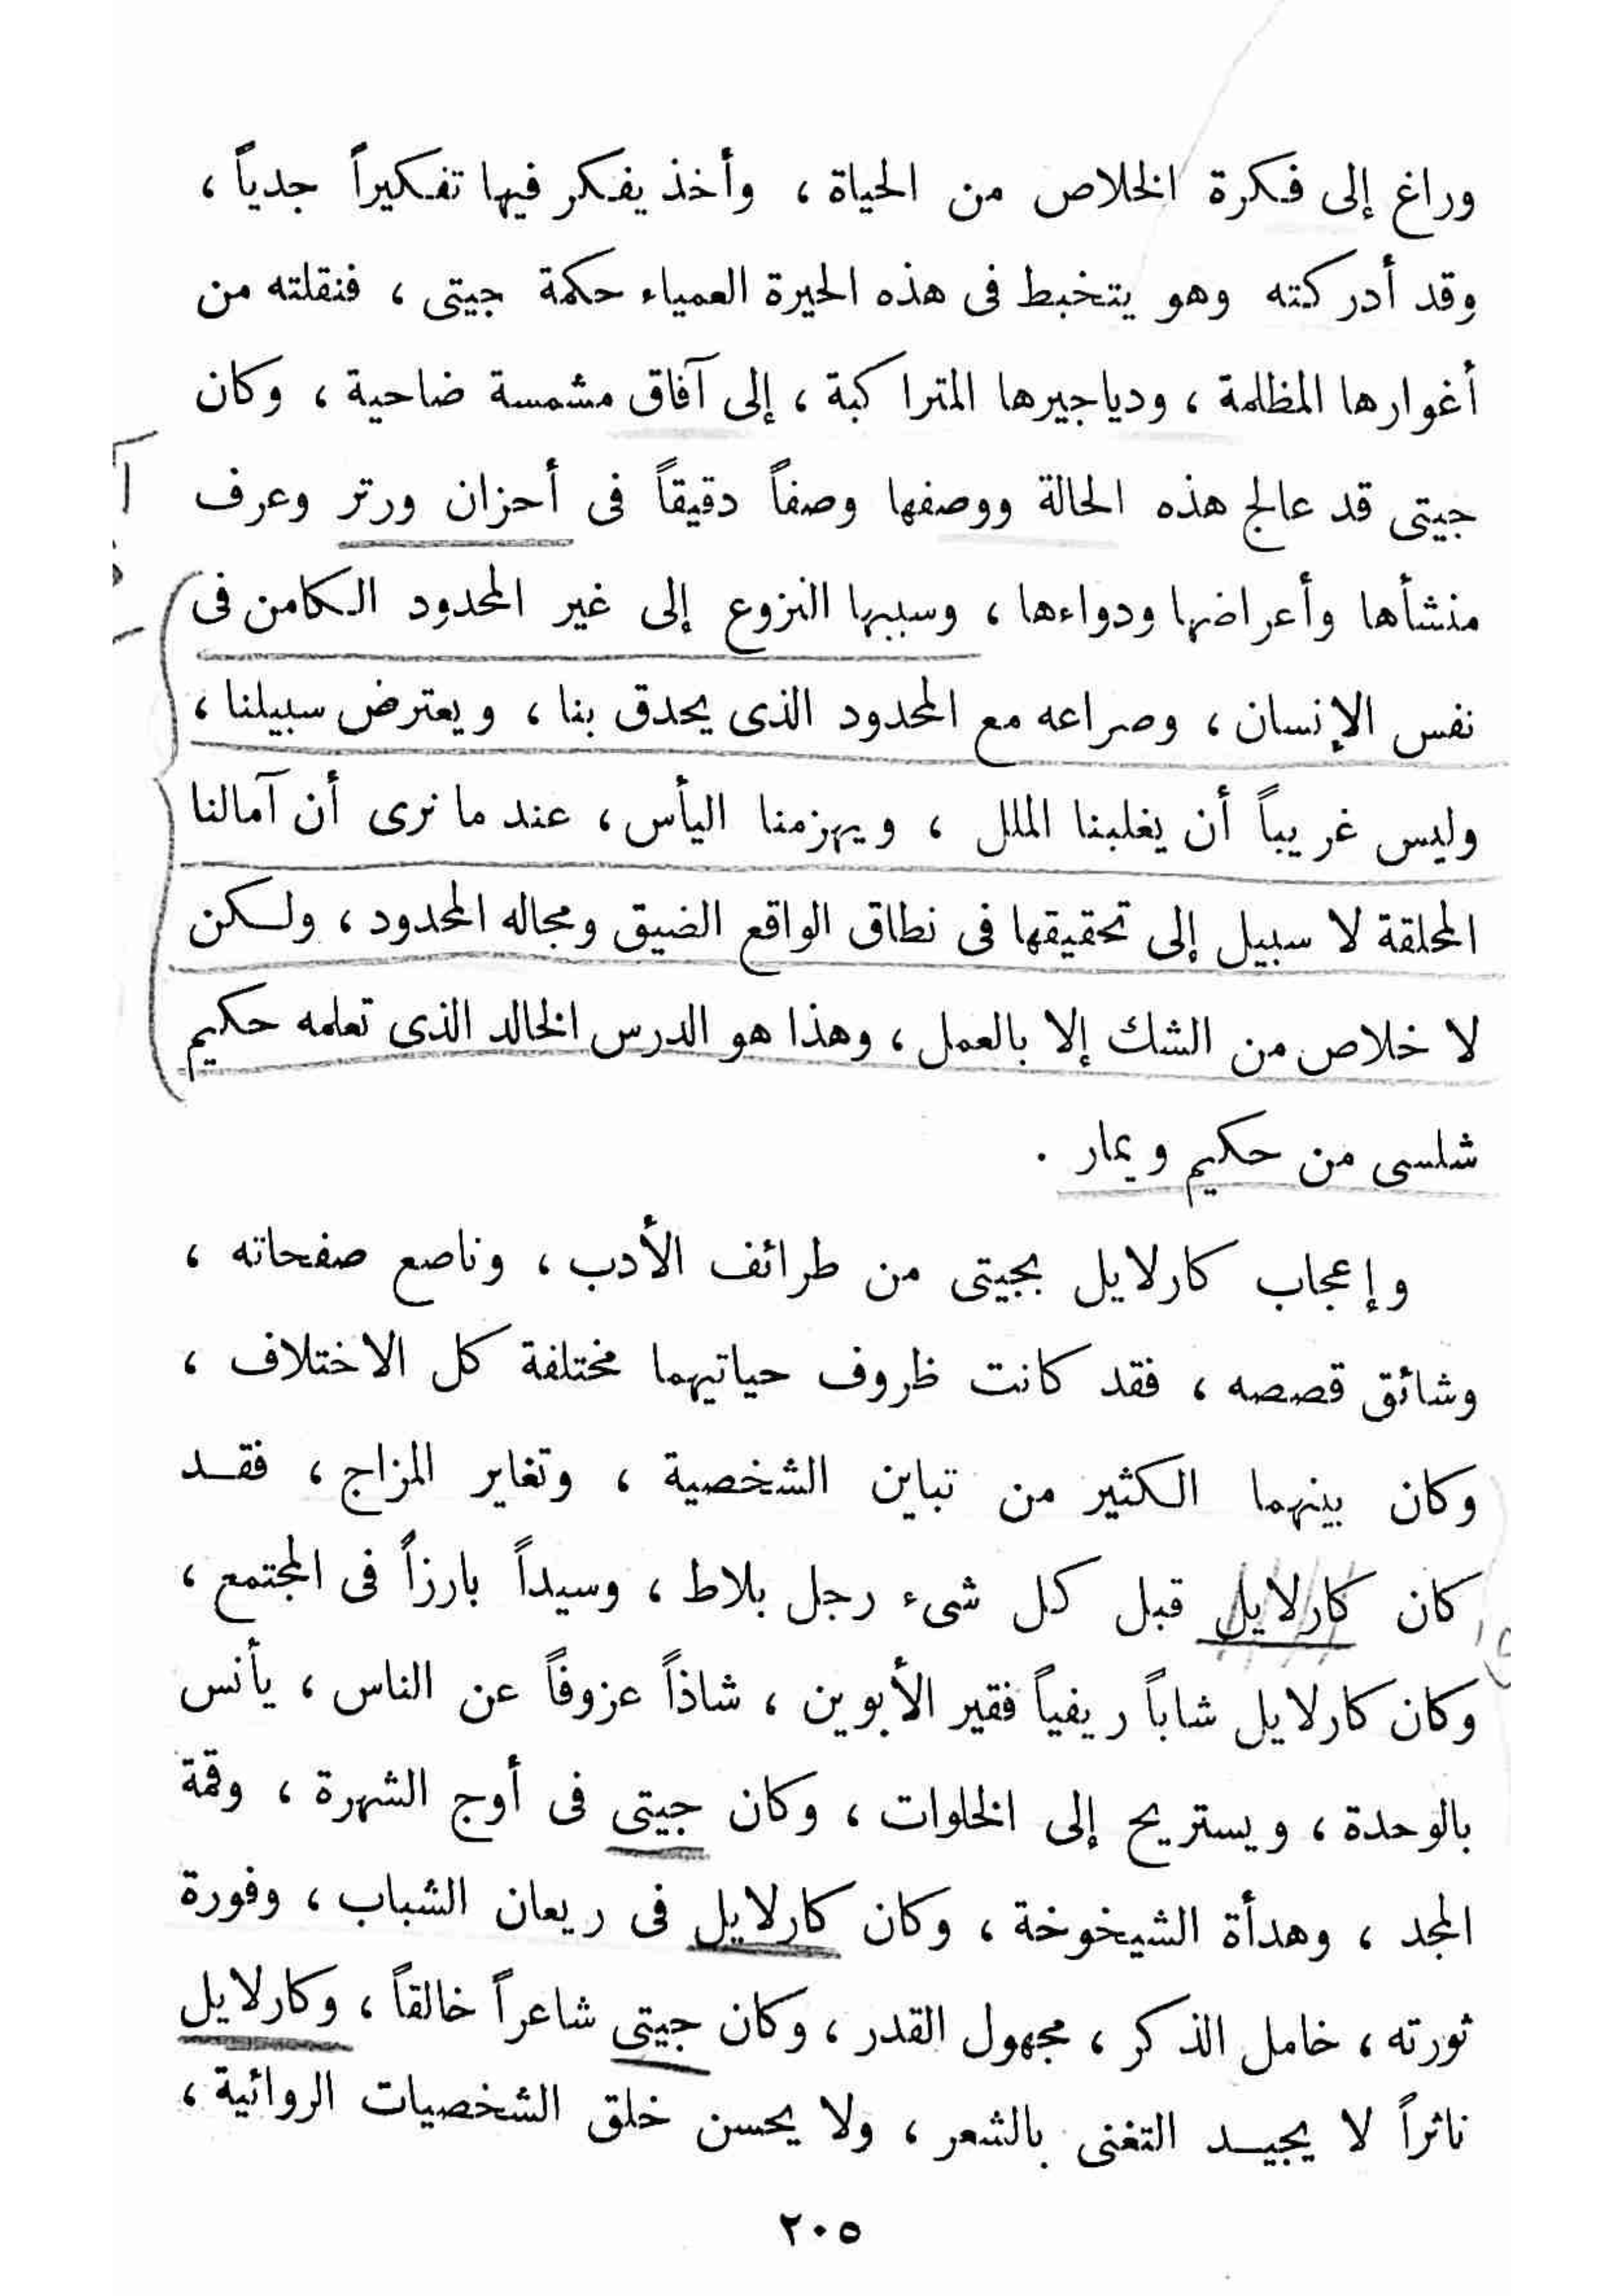 وراغ إلى فكرة الخلاص من الحياة ، وأخذ يفكر فيها تفكيراً جدياً ،
وقد أدركته وهو يتخبط فى هذه الحيرة العمياء حكمة جيتى ، فنقلته من
أغوارها المظلمة ، ودياجيرها المتراكبة ، إلى آفاق مشمسة ضاحية ، وكان
جيتى قد عالج هذه الحالة ووصفها وصفاً دقيقاً فى أحزان ورتر وعرف
منشأها وأعراضها ودواءها ، وسببها النزوع إلى غير المحدود الكامن فى
نفس الإنسان ، وصراعه مع المحدود الذى يحدق بنا ، ويعترض سبيلنا ،
وليس غريباً أن يغلبنا الملل ، ويهزمنا اليأس ، عند ما نرى أن آمالنا
المحلقة لا سبيل إلى تحقيقها فى نطاق الواقع الضيق ومجاله المحدود ، ولكن
لا خلاص من الشك إلا بالعمل ، وهذا هو الدرس الخالد الذى تعلمه حكيم
شلسى من حكيم ويمار .
وإعجاب كارلايل بجيتى من طرائف الأدب ، وناصع صفحاته ،
وشائق قصصه ، فقد كانت ظروف حياتيهما مختلفة كل الاختلاف ،
وكان بينهما الكثير من تباين الشخصية ، وتغاير المزاج ، فقد
كان كارلايل قبل كل شىء رجل بلاط ، وسيداً بارزاً فى المجتمع ،
وكان كارلايل شاباً ريفياً فقير الأبوين ، شاذاً عزوفاً عن الناس ، يأنس
بالوحدة ، ويستريح إلى الخلوات ، وكان جيتى فى أوج الشهرة ، وقمة
المجد ، وهدأة الشيخوخة ، وكان كارلايل فى ريعان الشباب ، وفورة
ثورته ، خامل الذكر ، مجهول القدر ، وكان جيتى شاعراً خالقاً ، وكارلايل
ناثراً لا يجيد التغنى بالشعر ، ولا يحسن خلق الشخصيات الروائية ،
٢٠٥